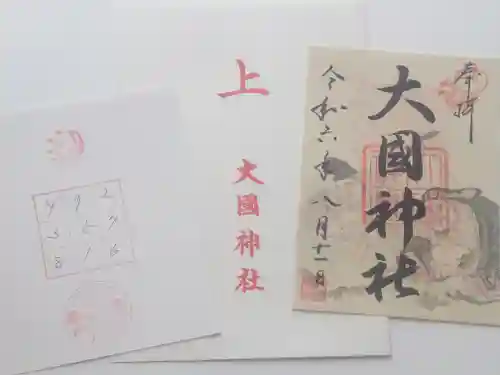 奉拝
大國神社
令和六年八月十一日
上
大國神社
4 9 2
3 5 7
8 1 6